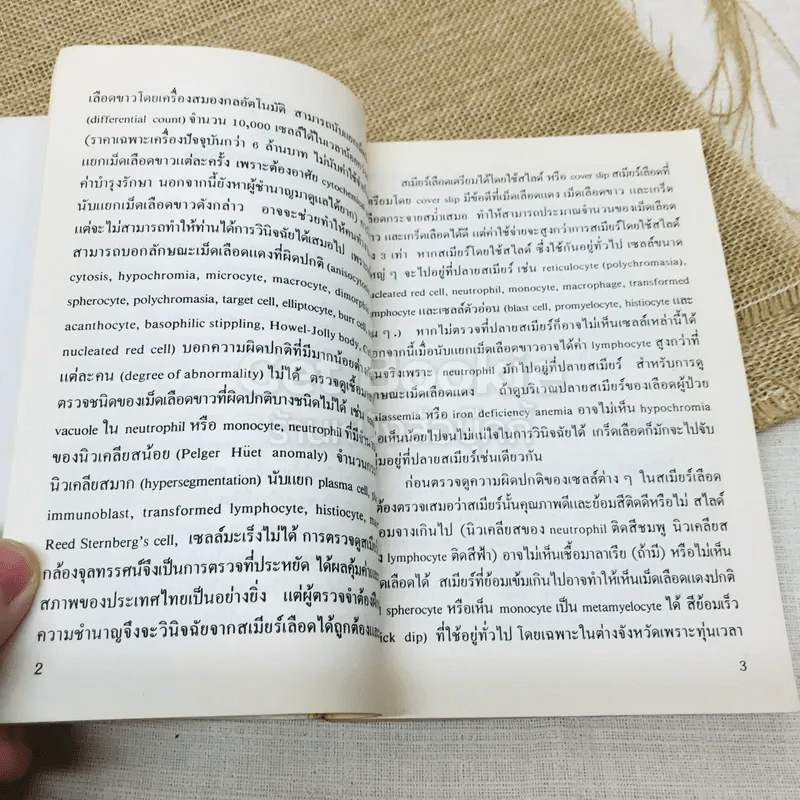 เลือดขาวโดยเครื่องสมองกลอัตโนมัติ สามารถนับแยกเม็ด
(differential count) จำนวน 10,000 เซลล์ได้ในเวลา
(ราคาเฉพาะเครื่องปัจจุบันกว่า 6 ล้านบาท ไม่นับค่าใช้จ่าย
แยกเม็ดเลือดขาวแต่ละครั้ง เพราะต้องอาศัย cytochemical
ค่าบำรุงรักษา นอกจากนี้ยังหาผู้ชำนาญมาดูแลได้ยาก)
นับแยกเม็ดเลือดขาวดังกล่าว อาจจะช่วยทำให้คน
แต่จะไม่สามารถทำให้ท่านได้การวินิจฉัยได้เสมอไป
สามารถบอกลักษณะเม็ดเลือดแดงที่ผิดปกติ (anisocytosis,
cytosis, hypochromia, microcyte, macrocyte, dimorphic
spherocyte, polychromasia, target cell, elliptocyte, burr cell
acanthocyte, basophilic stippling, Howel-Jolly body,
nucleated red cell) บอกความผิดปกติที่มีมากน้อย
แต่ละคน (degree of abnormality) ไม่ได้ ตรวจดูเชื้อ
ตรวจชนิดของเม็ดเลือดขาวที่ผิดปกติบางชนิดไม่ได้ เช่น
vacuole ใน neutrophil หรือ monocyte, neutrophil ที่มี
ของนิวเคลียสน้อย (Pelger Hüet anomaly) จำนวน
นิวเคลียสมาก (hypersegmentation) นับแยก plasma cell,
immunoblast, transformed lymphocyte, histiocyte,
Reed Sternberg's cell, เซลล์มะเร็งไม่ได้ การตรวจดู
กล้องจุลทรรศน์จึงเป็นการตรวจที่ประหยัด ได้ผลคุ้มค่า
สภาพของประเทศไทยเป็นอย่างยิ่ง แต่ผู้ตรวจจำต้อง
ความชำนาญจึงจะวินิจฉัยจากสเมียร์เลือดได้ถูกต้อง
2
สเมียร์เลือดเตรียมได้โดยใช้สไลด์ หรือ cover slip สเมียร์เลือดที่
เตรียมโดย cover slip มีข้อดีที่เม็ดเลือดแดง เม็ดเลือดขาว และเกร็ด
เลือดกระจายสม่ำเสมอ ทำให้สามารถประมาณจำนวนของเม็ดเลือด
และเกร็ดเลือดได้ดี แต่ค่าใช้จ่ายจะสูงกว่าการสเมียร์โดยใช้สไลด์
3 เท่า หากสเมียร์โดยใช้สไลด์ ซึ่งใช้กันอยู่ทั่วไป เซลล์ขนาด
ใหญ่ ๆ จะไปอยู่ที่ปลายสเมียร์ เช่น reticulocyte (polychromasia),
nucleated red cell, neutrophil, monocyte, macrophage, transformed
lymphocyte และเซลล์ตัวอ่อน (blast cell, promyelocyte, histiocyte และ
อื่น ๆ.) หากไม่ตรวจที่ปลายสเมียร์ก็อาจไม่เห็นเซลล์เหล่านี้ได้
นอกจากนี้เมื่อนับแยกเม็ดเลือดขาวอาจได้ค่า lymphocyte สูงกว่าที่
เป็นจริงเพราะ neutrophil มักไปอยู่ที่ปลายสเมียร์ สำหรับการดู
ลักษณะเม็ดเลือดแดง ถ้าดูบริเวณปลายสเมียร์ของเลือดผู้ป่วย
thalassemia หรือ iron deficiency anemia อาจไม่เห็น hypochromia
หรือเห็นน้อยไปจนไม่แน่ใจในการวินิจฉัยได้ เกร็ดเลือดก็มักจะไปจับ
กลุ่มอยู่ที่ปลายสเมียร์เช่นเดียวกัน
ก่อนตรวจดูความผิดปกติของเซลล์ต่าง ๆ ในสเมียร์เลือด
ต้องตรวจเสมอว่าสเมียร์นั้นคุณภาพดีและย้อมสีติดดีหรือไม่ สไลด์
ย้อมจางเกินไป (นิวเคลียสของ neutrophil ติดสีชมพู นิวเคลียส
lymphocyte ติดสีฟ้า) อาจไม่เห็นเชื้อมาลาเรีย (ถ้ามี) หรือไม่เห็น
เกร็ดเลือดได้ สเมียร์ที่ย้อมเข้มเกินไปอาจทำให้เห็นเม็ดเลือดแดงปกติ
spherocyte หรือเห็น monocyte เป็น metamyelocyte ได้ สีย้อมเร็ว
(quick dip) ที่ใช้อยู่ทั่วไป โดยเฉพาะในต่างจังหวัดเพราะทุ่นเวลา
3